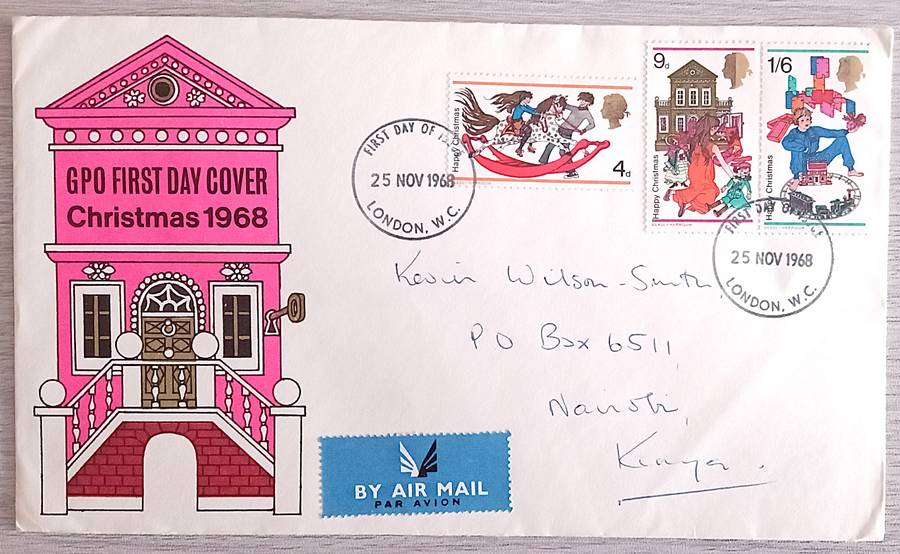 GPO FIRST DAY COVER
Christmas 1968
Happy Christmas
4d
Happy Christmas
9d
Happy Christmas
1/6
FIRST DAY OF ISSUE
25 NOV 1968
LONDON, W.C.
FIRST DAY OF ISSUE
25 NOV 1968
LONDON, W.C.
Kevin Wilson-Smith,
PO Box 6511,
Nairobi,
Kenya.
BY AIR MAIL
PAR AVION